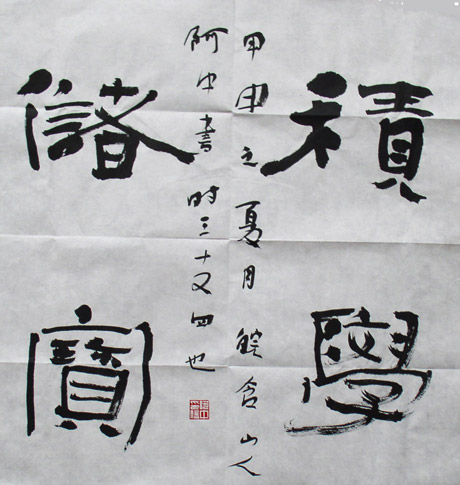 積學
甲申之夏月皖含山人
阿中書時三十又四也
儲寶